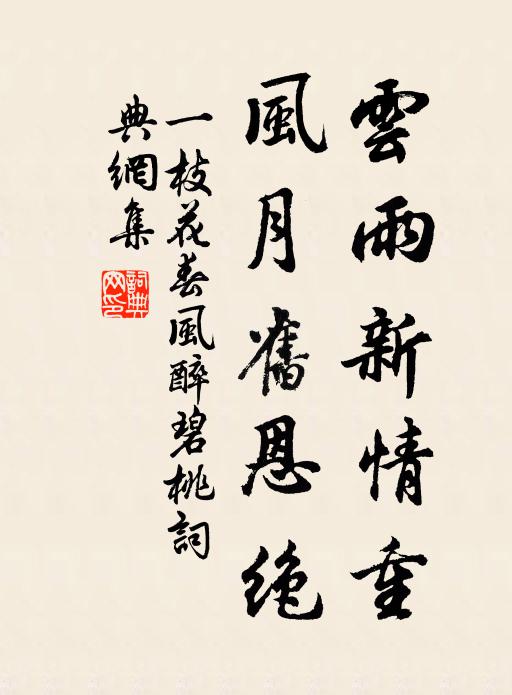 雲雨新情重
風月舊恩絶
一枝花春風醉碧桃詞
典網集
詞典網印